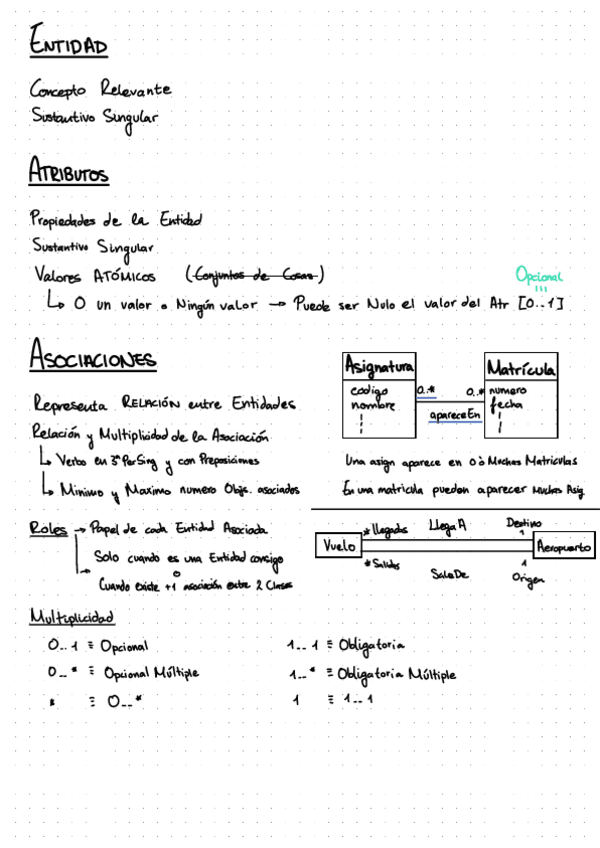 ENTIDAD
Concepto Relevante
Sustantivo Singular
ATRIBUTOS
Propiedades de la Entidad
Sustantivo Singular
Valores ATÓMICOS (Conjuntos de Cosas)
↳ O un valor o Ningún valor → Puede ser Nulo el valor del Atr [0..1]
Opcional
ASOCIACIONES
Representa RELACIÓN entre Entidades
Relación y Multiplicidad de la Asociación
↳ Verbo en 3ª PerSing y con Preposiciones
↳ Minimo y Maximo numero Objs. asociados
Asignatura
codigo
nombre
0..*
0..*
apareceEn
Matrícula
numero
fecha
Una asign aparece en 0 ò Muchas Matriculas
En una matricula pueden aparecer Muchas Asig
Roles → Papel de cada Entidad Asociada
Solo cuando es una Entidad consigo
o
Cuando existe +1 asociación entre 2 Clases
Vuelo
* llegadas
LlegaA
Destino
1
Aeropuerto
* Salidas
SaleDe
1
Origen
Multiplicidad
0..1 ≡ Opcional
0..* ≡ Opcional Múltiple
* ≡ 0..*
1..1 ≡ Obligatoria
1..* ≡ Obligatoria Múltiple
1 ≡ 1..1